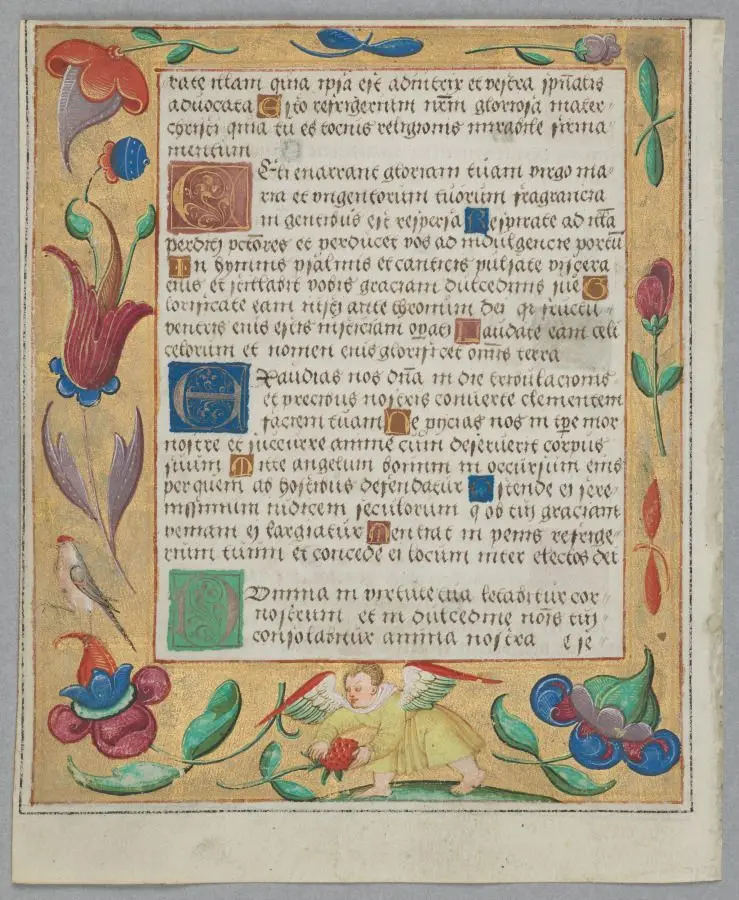 aduocata Esto refrigerium nr̄m gloriosa mater
christi quia tu es tocius religionis mirabile firma
mentum
Celi enarrant gloriam tuam virgo ma
ria et vngentorum tuorum fragrancia
in gentibus est respersa Respirate ad illā
perditi pctōres et perducet vos ad indulgencie portū
In hymnis psalmis et canticis pulsate viscera
eius et stillabit vobis graciam dulcedinis sue G
lorificate eam iusti ante thronum dei qr fructu
ventris eius estis iusticiam opati Laudate eam celi
celorum et nomen eius glorificet omīs terra
Exaudias nos dn̄a in die tribulacionis
et precibus nostris conuerte clementem
faciem tuam Ne p̄icias nos in tp̄e mor
nostre et succurre anime cum deseruerit corpus
suum Mitte angelum bonum in occursum eius
per quem ab hostibus defendatur Ostende ei sere
nissimum iudicem seculorum q ob tui graciam
veniam ei largiatur Sentiat in penis refrige
rium tuum et concede ei locum inter electos dei
Domina in virtute tua letabitur cor
nostrum et in dulcedine nois̄ tui
consolabitur anima nostra